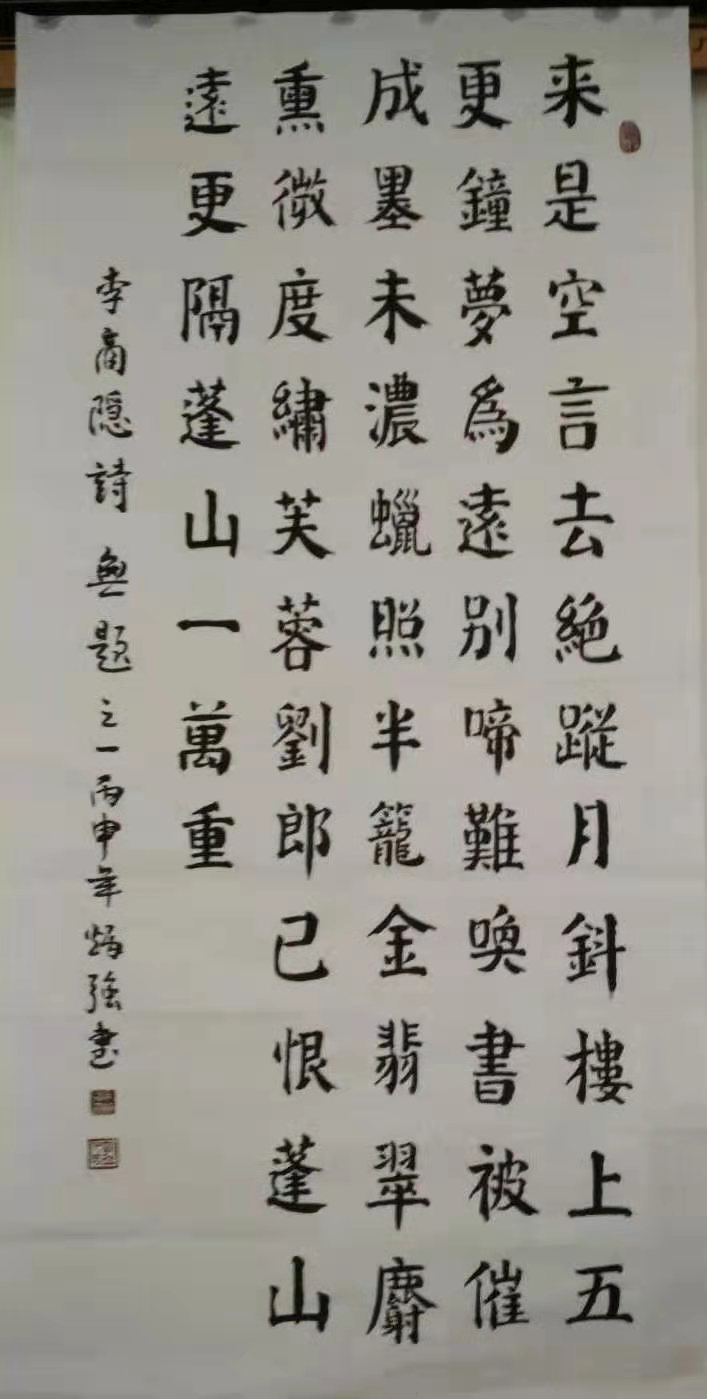 来是空言去絶蹤月斜樓上五
更鐘夢為遠别啼難喚書被催
成墨未濃蠟照半籠金翡翠麝
熏微度繡芙蓉劉郎已恨蓬山
遠更隔蓬山一萬重
李商隐詩無題之一丙申年炳強書